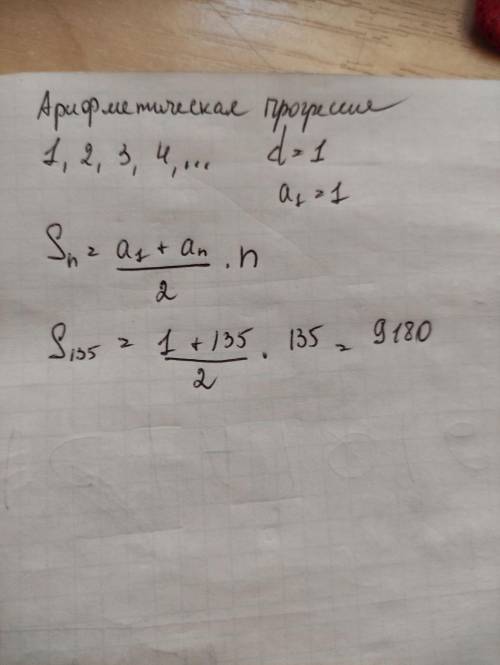 Арифметическая прогрессия
1, 2, 3, 4, ... d = 1
a₁ = 1
Sₙ = (a₁ + aₙ)/2 · n
S₁₃₅ = (1 + 135)/2 · 135 = 9180